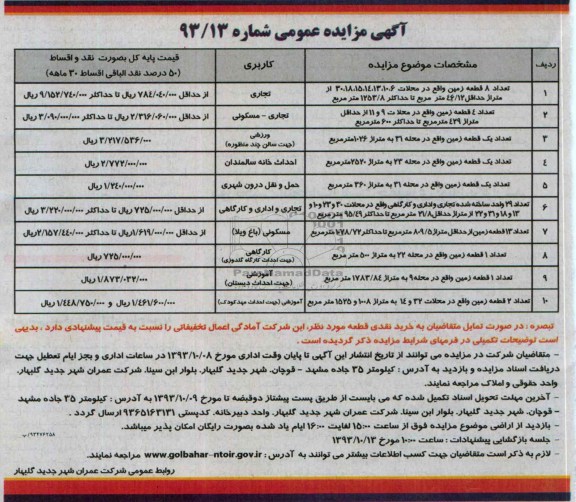 آگهی مزایده عمومی شماره ۹۳/۱۳
ردیف
مشخصات موضوع مزایده
کاربری
قیمت پایه کل بصورت نقد و اقساط
(۵۰ درصد نقد الباقی اقساط ۳۰ ماهه)
۱
تعداد ۸ قطعه زمین واقع در محلات ۱۰،۶،۱۳،۱۴،۱۵،۱۸،۳۰ از
متراژ حداقل ۴۶/۱۲ متر مربع تا حداکثر ۱۲۵۳/۸ متر مربع
تجاری
از حداقل ۷۸۴/۰۴۰/۰۰۰ ریال تا حداکثر ۹/۱۵۲/۷۴۰/۰۰۰ ریال
۲
تعداد ۴ قطعه زمین واقع در محلات ۹ و ۱۱ از حداقل
متراژ ۴۳۹ مترمربع تا حداکثر ۶۰۰ مترمربع
تجاری - مسکونی
از حداقل ۲/۳۱۶/۰۶۰/۰۰۰ ریال تا حداکثر ۳/۰۹۰/۰۰۰/۰۰۰ ریال
۳
تعداد یک قطعه زمین واقع در محله ۳۱ به متراژ ۱۰۲۶مترمربع
ورزشی
(جهت سالن چند منظوره)
۳/۲۱۷/۵۳۶/۰۰۰ ریال
۴
تعداد یک قطعه زمین واقع در محله ۲۳ به متراژ ۲۵۲۰مترمربع
احداث خانه سالمندان
۲/۷۷۲/۰۰۰/۰۰۰ ریال
۵
تعداد یک قطعه زمین واقع در محله ۳۱ به متراژ ۳۶۰ مترمربع
حمل و نقل درون شهری
۱/۲۴۰/۰۰۰/۰۰۰ ریال
۶
تعداد ۲۹ واحد ساخته شده تجاری و اداری و کارگاهی واقع در محلات ۳۰ و ۲۳ و ۱۰ و
۱۳ و ۱۸ و ۳۱ و ۲۲ از متراژ حداقل ۲۱/۸ مترمربع تا حداکثر ۹۵/۴۹ مترمربع
تجاری و اداری و کارگاهی
از حداقل ۷۲۵/۰۰۰/۰۰۰ ریال تا حداکثر ۳/۲۲۰/۰۰۰/۰۰۰ ریال
۷
تعداد ۱۳ قطعه زمین از حداقل متراژ ۸۰۹/۵ مترمربع تا حداکثر ۱۰۷۸/۷۲ مترمربع
مسکونی (باغ ویلا)
از حداقل ۱/۶۱۹/۰۰۰/۰۰۰ریال تا حداکثر ۲/۱۵۷/۴۴۰/۰۰۰ریال
۸
تعداد ۱ قطعه زمین واقع در محله ۲۲ به متراژ ۵۰۰ متر مربع
کارگاهی
(جهت احداث کارگاه گلدوزی)
۷۲۵/۰۰۰/۰۰۰ ریال
۹
تعداد ۱ قطعه زمین واقع در محله ۹ به متراژ ۱۷۸۳/۸۴ متر مربع
آموزشی
(جهت احداث دبستان)
۱/۸۷۳/۰۳۲/۰۰۰ ریال
۱۰
تعداد ۲ قطعه زمین واقع در محلات ۳۲ و ۱۴ به متراژ ۱۰۰۸ و ۱۵۲۵ متر مربع
آموزشی (جهت احداث مهدکودک)
۱/۴۶۱/۶۰۰/۰۰۰ ریال و ۱/۴۴۸/۷۵۰/۰۰۰ ریال
ParsNamadData
تبصره : در صورت تمایل متقاضیان به خرید نقدی قطعه مورد نظر، این شرکت آمادگی اعمال تخفیفاتی را نسبت به قیمت پیشنهادی دارد . بدیهی
است توضیحات تکمیلی در فرمهای شرایط مزایده ذکر گردیده است .
- متقاضیان شرکت در مزایده می توانند از تاریخ انتشار این آگهی تا پایان وقت اداری مورخ ۱۳۹۳/۱۰/۰۸ در ساعات اداری و بجز ایام تعطیل جهت
دریافت اسناد مزایده و بازدید به آدرس : کیلومتر ۳۵ جاده مشهد - قوچان. شهر جدید گلبهار. بلوار ابن سینا. شرکت عمران شهر جدید گلبهار.
واحد حقوقی و املاک مراجعه نمایند.
- آخرین مهلت تحویل اسناد تکمیل شده که می بایست از طریق پست پیشتاز دوقبضه تا مورخ ۱۳۹۳/۱۰/۰۹ به آدرس : کیلومتر ۳۵ جاده مشهد
- قوچان. شهر جدید گلبهار. بلوار ابن سینا. شرکت عمران شهر جدید گلبهار. واحد دبیرخانه. کدپستی ۹۳۶۵۱۶۳۱۳۱ ارسال گردد .
- بازدید از اراضی موضوع مزایده فوق از ساعت ۱۵:۰۰ لغایت ۱۶:۰۰ ایام یاد شده بصورت رایگان امکان پذیر میباشد.
- جلسه بازگشایی پیشنهادات : ساعت ۱۰:۰۰ مورخ ۱۳۹۳/۱۰/۱۳
- لازم به ذکر است متقاضیان جهت کسب اطلاعات بیشتر می توانند به آدرس : www.golbahar-ntoir.gov.ir مراجعه نمایند.
روابط عمومی شرکت عمران شهر جدید گلبهار